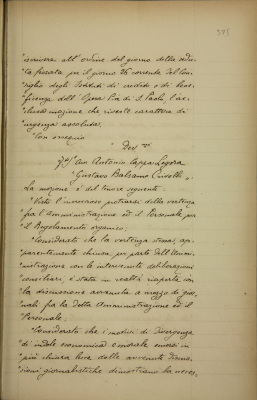 593
"iscrivere all'ordine del giorno della adu-
"la fissata per il giorno 26 corrente del Con-
"siglio degli Istituti di credito e di bene-
"ficenza dell'Opera Pia di S. Paolo, l'ac-
"clusa mozione che riveste carattere di
"urgenza assoluta.
"Con ossequio
"Dev.mi
Avv. Antonio Cappa Legora
"Gustavo Balsamo Crivelli"
La mozione è del tenore seguente:
"Visto l'increscioso protrarsi della vertenza
"fra l'Amministrazione ed il Personale per
"il Regolamento organico;
"Considerato che la vertenza stessa, ap-
"parentemente chiusa, per parte dell'Ammi-
"nistrazione con le intervenute deliberazioni
"consigliari, è stata in realtà riaperta con
"la discussione avvenuta a mezzo di gior-
"nali fra la detta Amministrazione ed il
"Personale;
"Considerato che i motivi di divergenza
"di indole economica e morale emersi in
"più chiara luce dalle avvenute discus-
"sioni giornalistiche dimostrano la neces-